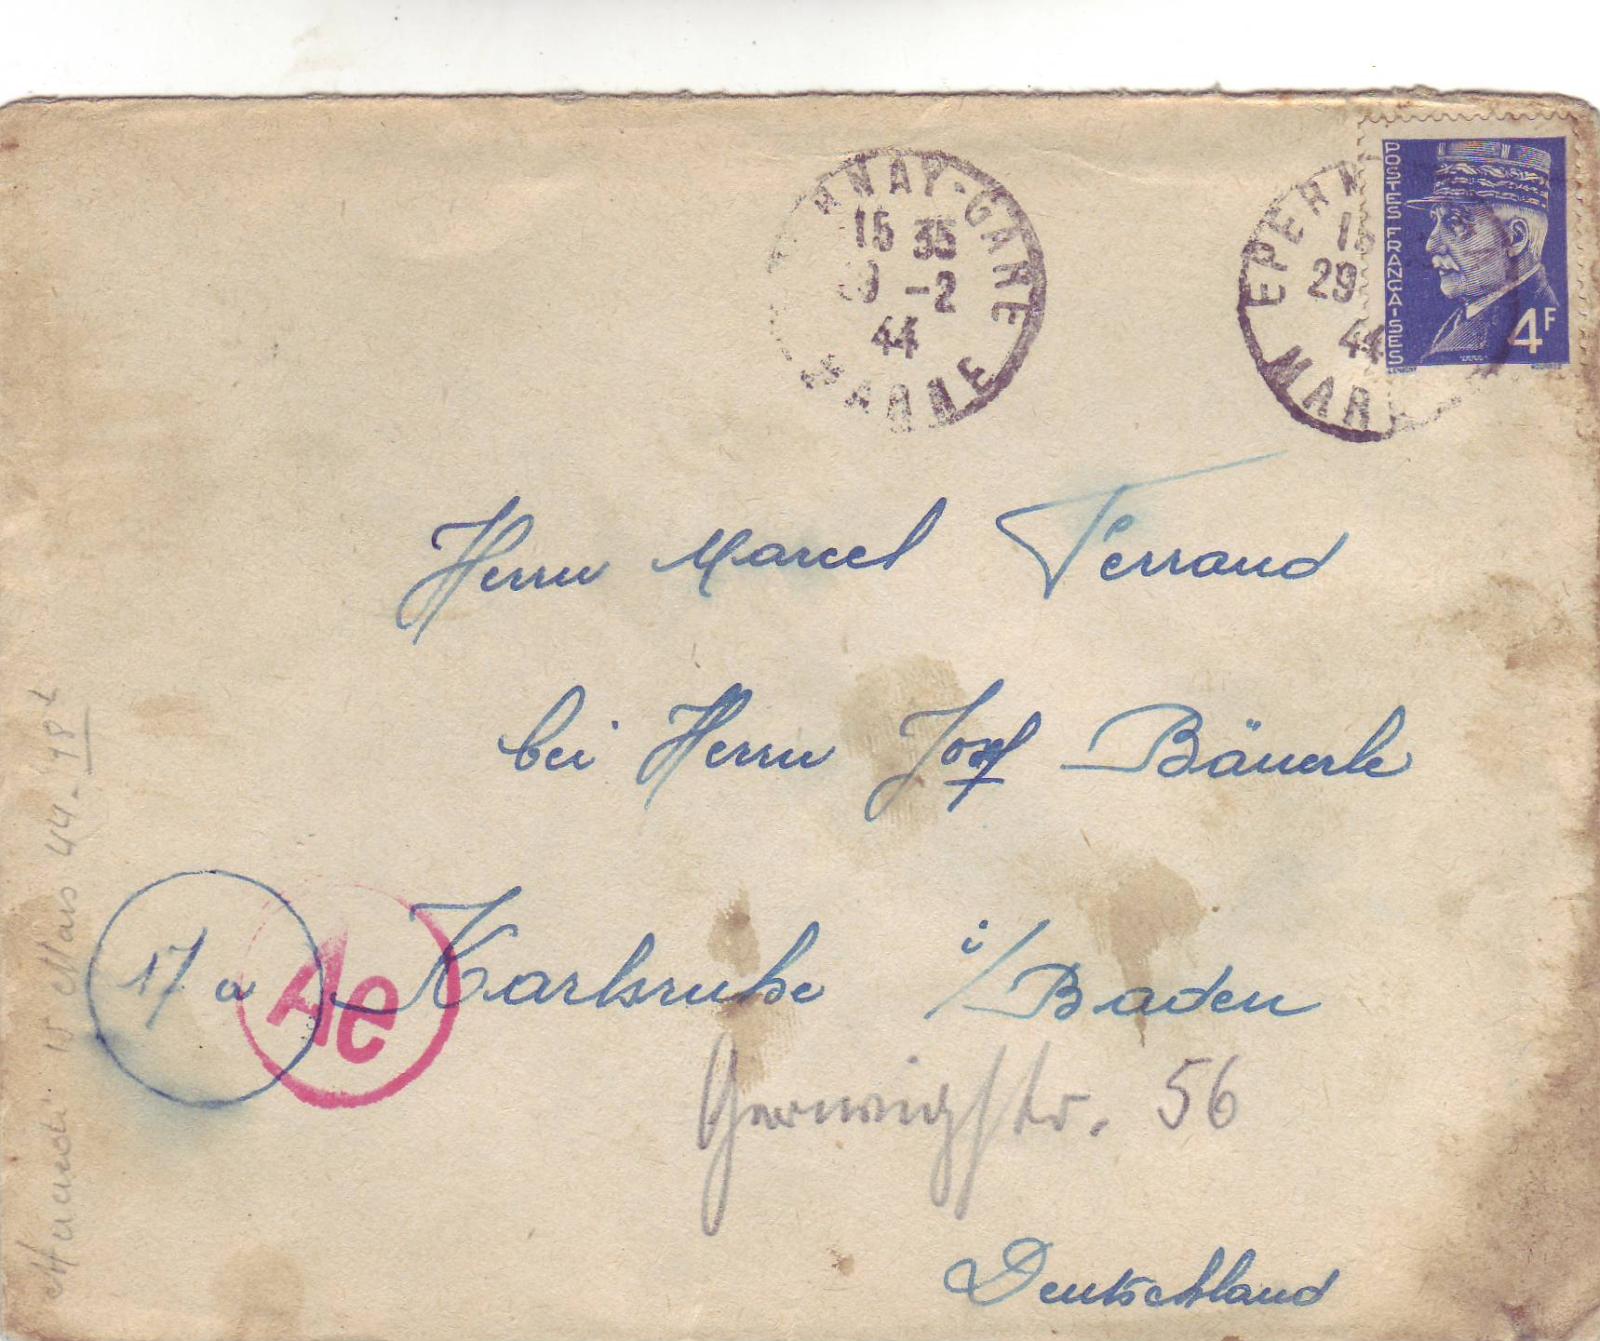 RNAY-GARE
15 35
9 -2
44
MARNE
EPERN
15
29
44
MAR
POSTES FRANÇAISES
4F
Herrn Marcel Ferrand
bei Herrn Josef Bäuerle
17 a
Ae
Karlsruhe i/Baden
Gerwigstr. 56
Deutschland
15 Mars 44 - 18h